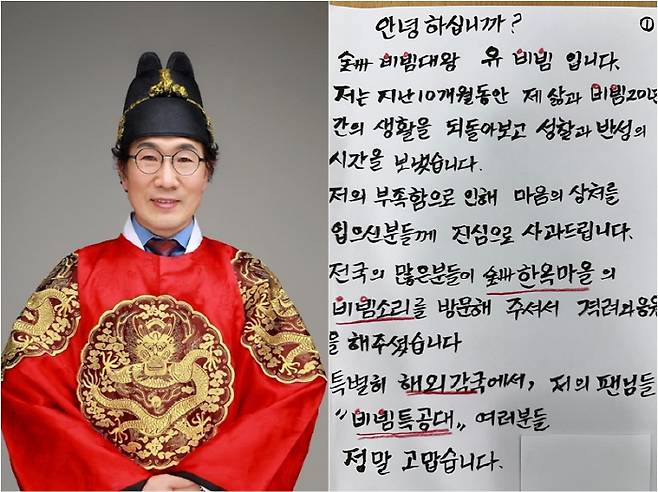 안녕하십니까? ①
全州 비빔대왕 유 비빔 입니다.
저는 지난 10개월동안 제 삶과 비빔20년
간의 생활을 되돌아보고 성찰과 반성의
시간을 보냈습니다.
저의 부족함으로 인해 마음의 상처를
입으신분들께 진심으로 사과드립니다.
전국의 많은분들이 全州한옥마을의
비빔소리를 방문해 주셔서 격려와응원
을 해주셨습니다
특별히 해외각국에서, 저의 팬님들
"비빔특공대" 여러분들
정말 고맙습니다.